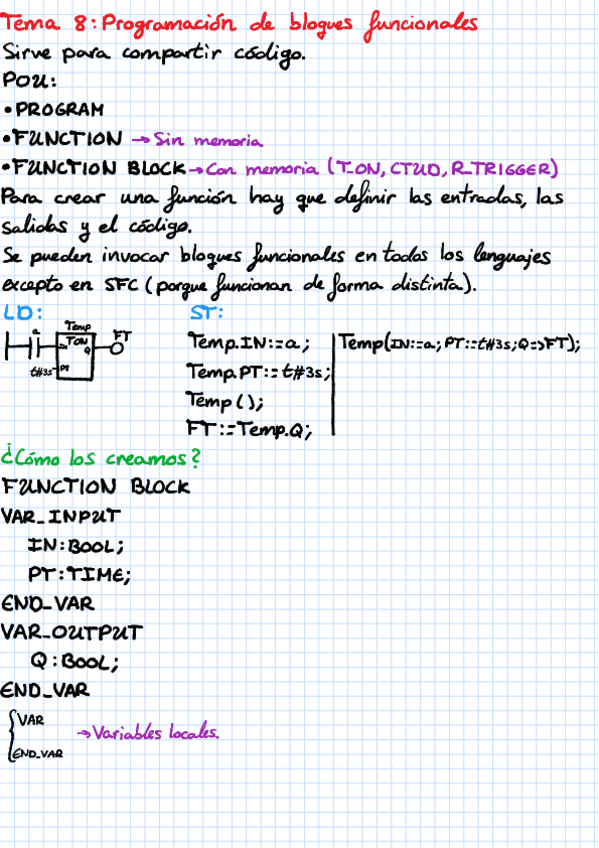 Tema 8: Programación de bloques funcionales
Sirve para compartir código.
POU:
• PROGRAM
• FUNCTION → Sin memoria
• FUNCTION BLOCK → Con memoria (T_ON, CTUD, R_TRIGGER)
Para crear una función hay que definir las entradas, las
salidas y el código.
Se pueden invocar bloques funcionales en todos los lenguajes
excepto en SFC (porque funcionan de forma distinta).
LD:
a
Temp
TON
IN
Q
FT
t#3s
PT
ST:
Temp.IN:=a;
Temp.PT:=t#3s;
Temp();
FT:=Temp.Q;
Temp(IN:=a; PT:=t#3s; Q=>FT);
¿Cómo los creamos?
FUNCTION BLOCK
VAR_INPUT
IN:BOOL;
PT:TIME;
END_VAR
VAR_OUTPUT
Q:BOOL;
END_VAR
VAR
→ Variables locales.
END_VAR